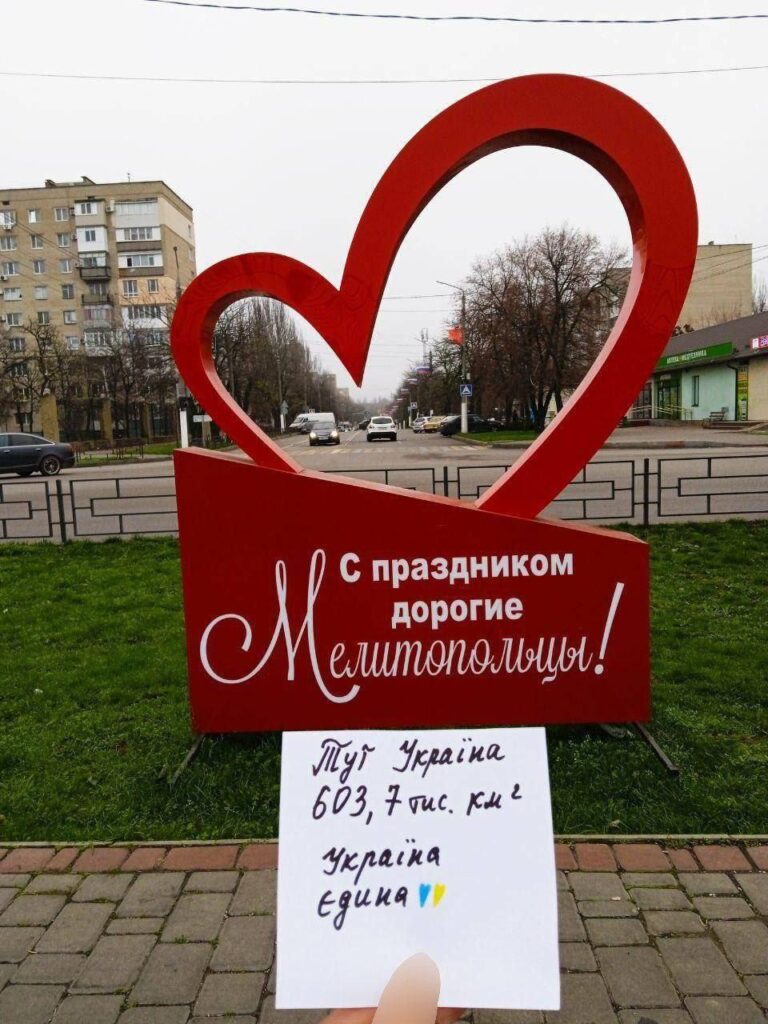 С праздником
дорогие
Мелитопольцы!
Тут Україна
603,7 тис. км²
Україна
Єдина